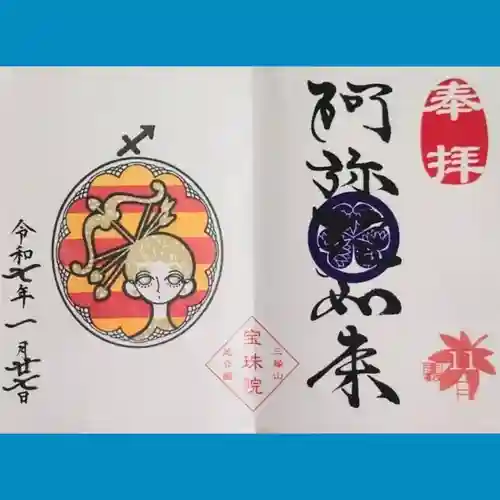 奉拝
阿弥陀如来
11月
三縁山
宝珠院
令和七年一月廿七日